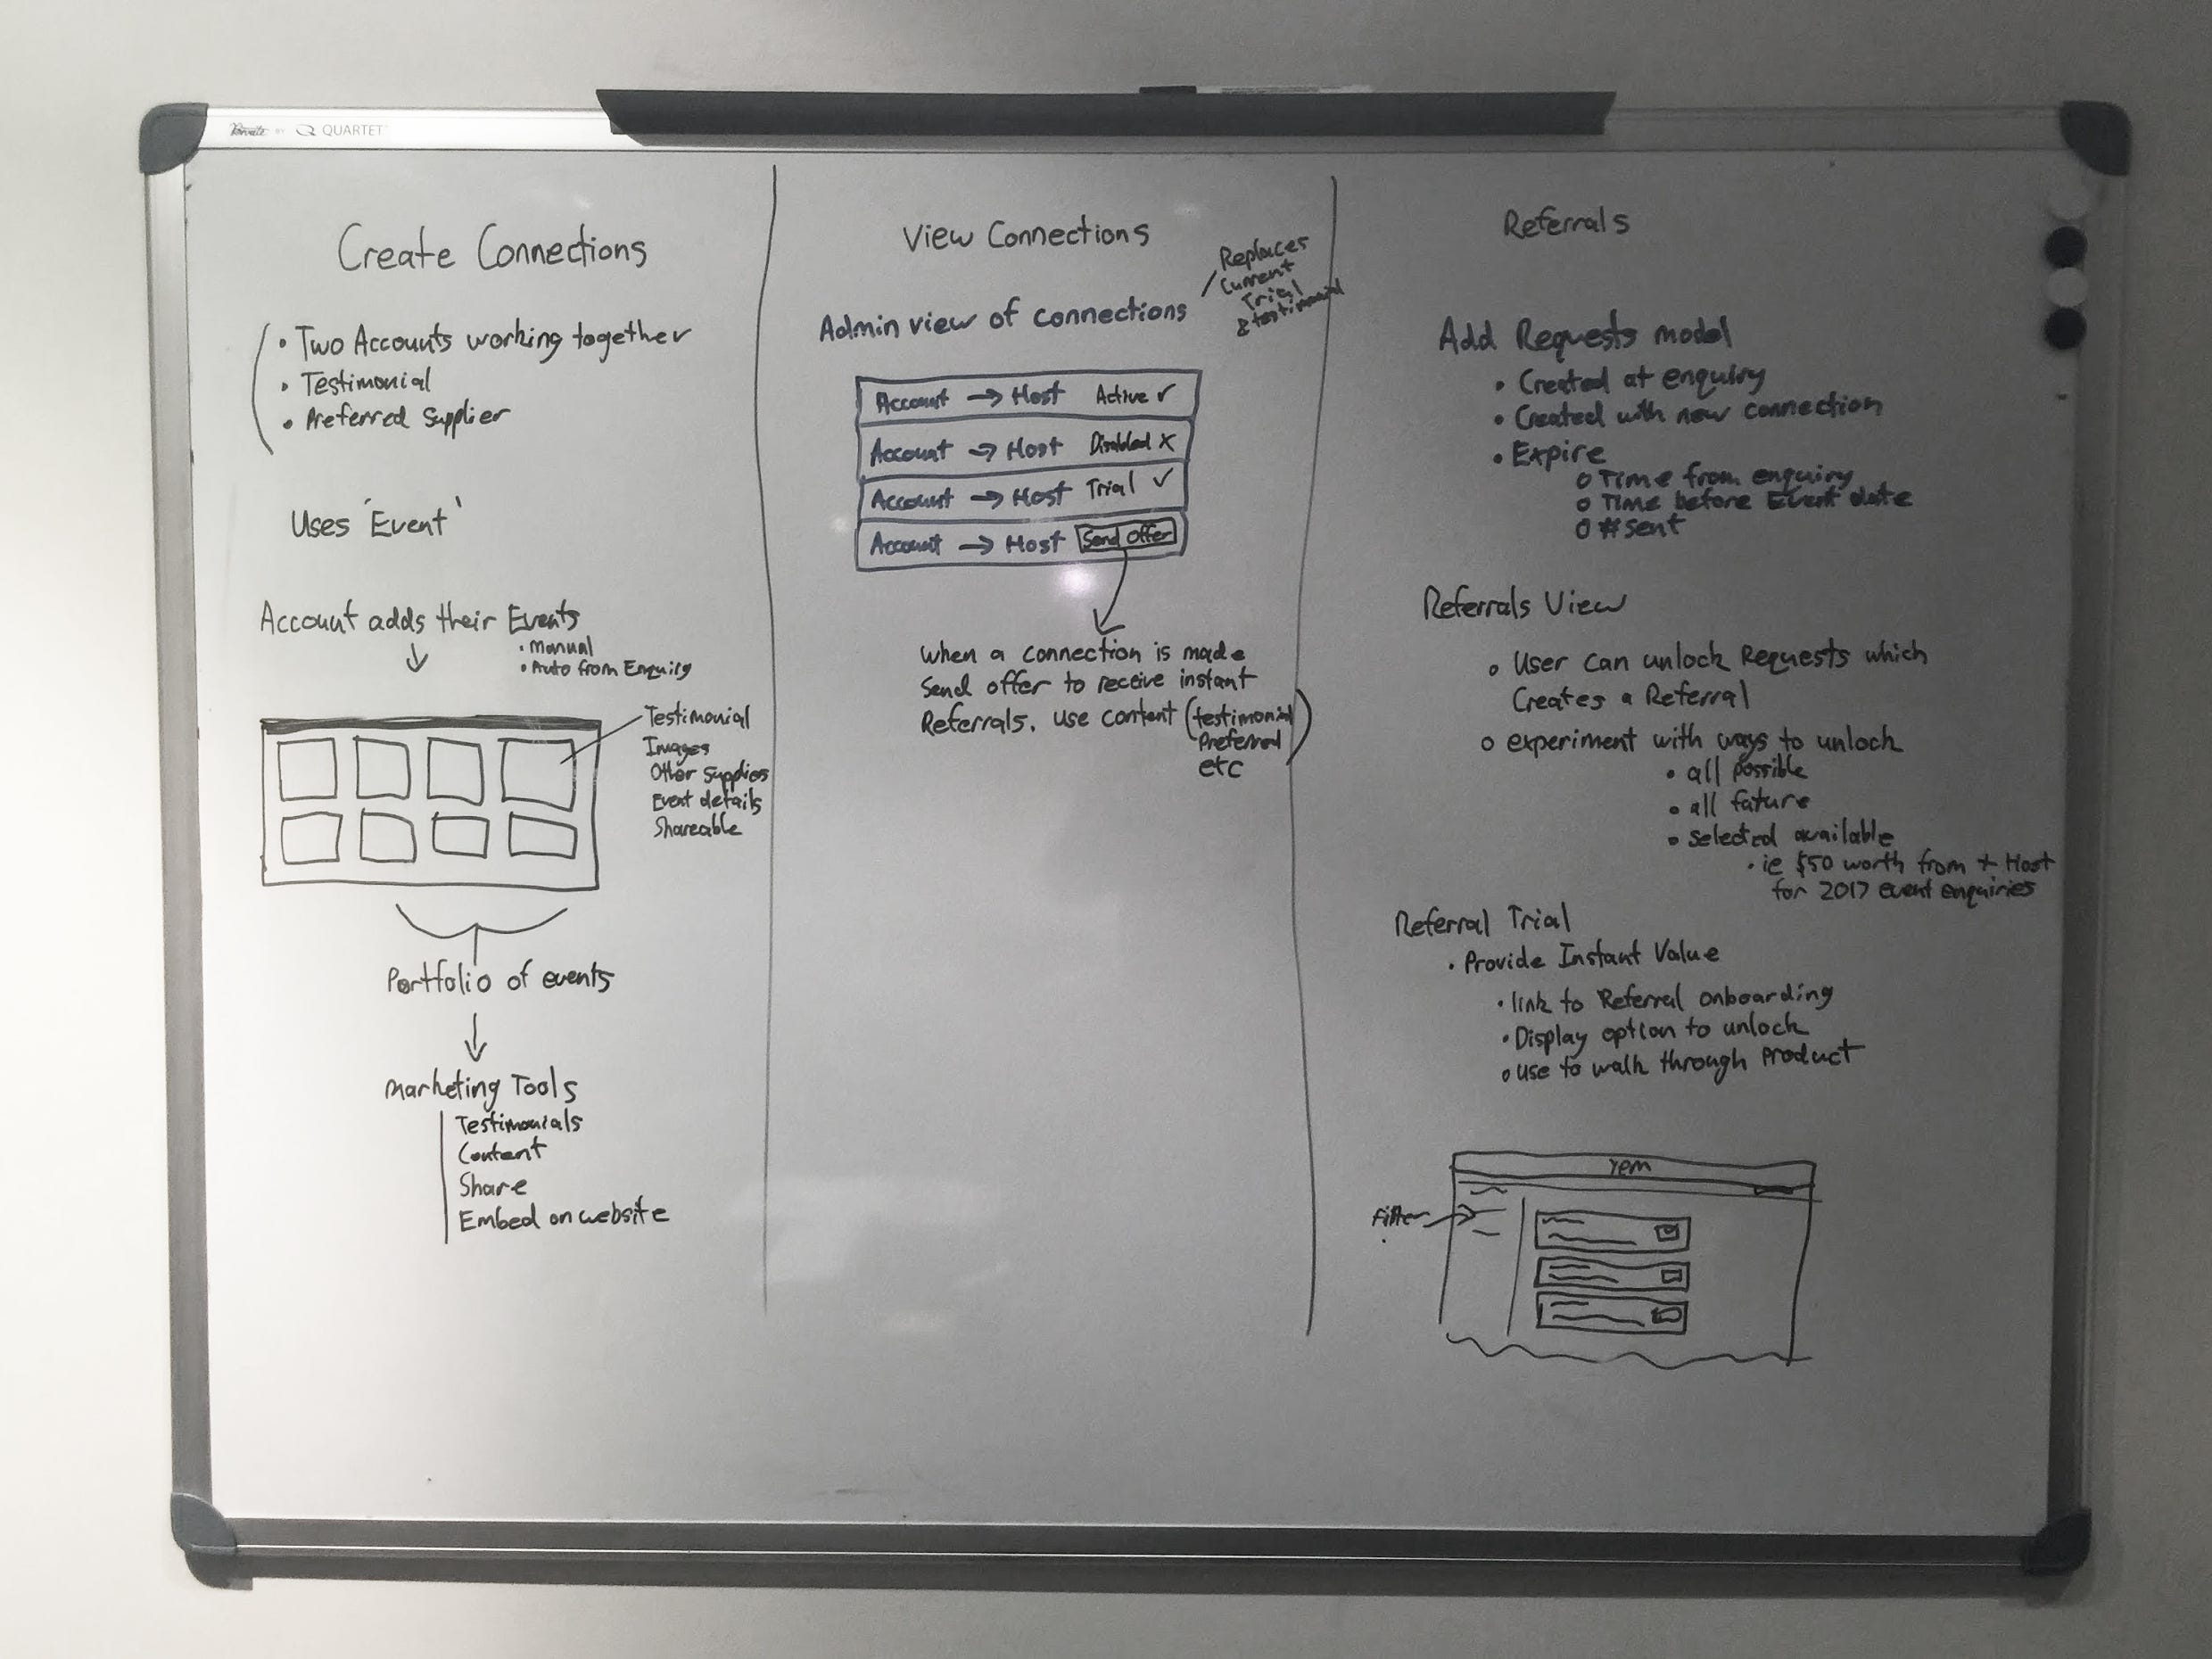 BY QUARTET
Create Connections
• Two Accounts working together
• Testimonial
• Preferred Supplier
Uses 'Event'
Account adds their Events
• Manual
• Auto from Enquiry
Testimonial
Images
Other Supplies
Event details
Shareable
Portfolio of events
Marketing Tools
Testimonials
Content
Share
Embed on website
View Connections
Replaces
Current
Trial
& testimonial
Admin view of connections
Account → Host Active ✓
Account → Host Disabled X
Account → Host Trial ✓
Account → Host Send Offer
When a connection is made
Send offer to receive instant
Referrals. Use content (testimonial
Preferred
etc)
Referrals
Add Requests model
• Created at enquiry
• Created with new connection
• Expire
o Time from enquiry
o Time before Event date
o # sent
Referrals View
o User can unlock Requests which
Creates a Referral
o experiment with ways to unlock
• all possible
• all future
• selected available
• ie $50 worth from + Host
for 2017 event enquiries
Referral Trial
• Provide Instant Value
• link to Referral onboarding
• Display option to unlock
o use to walk through Product
Yem
Filter